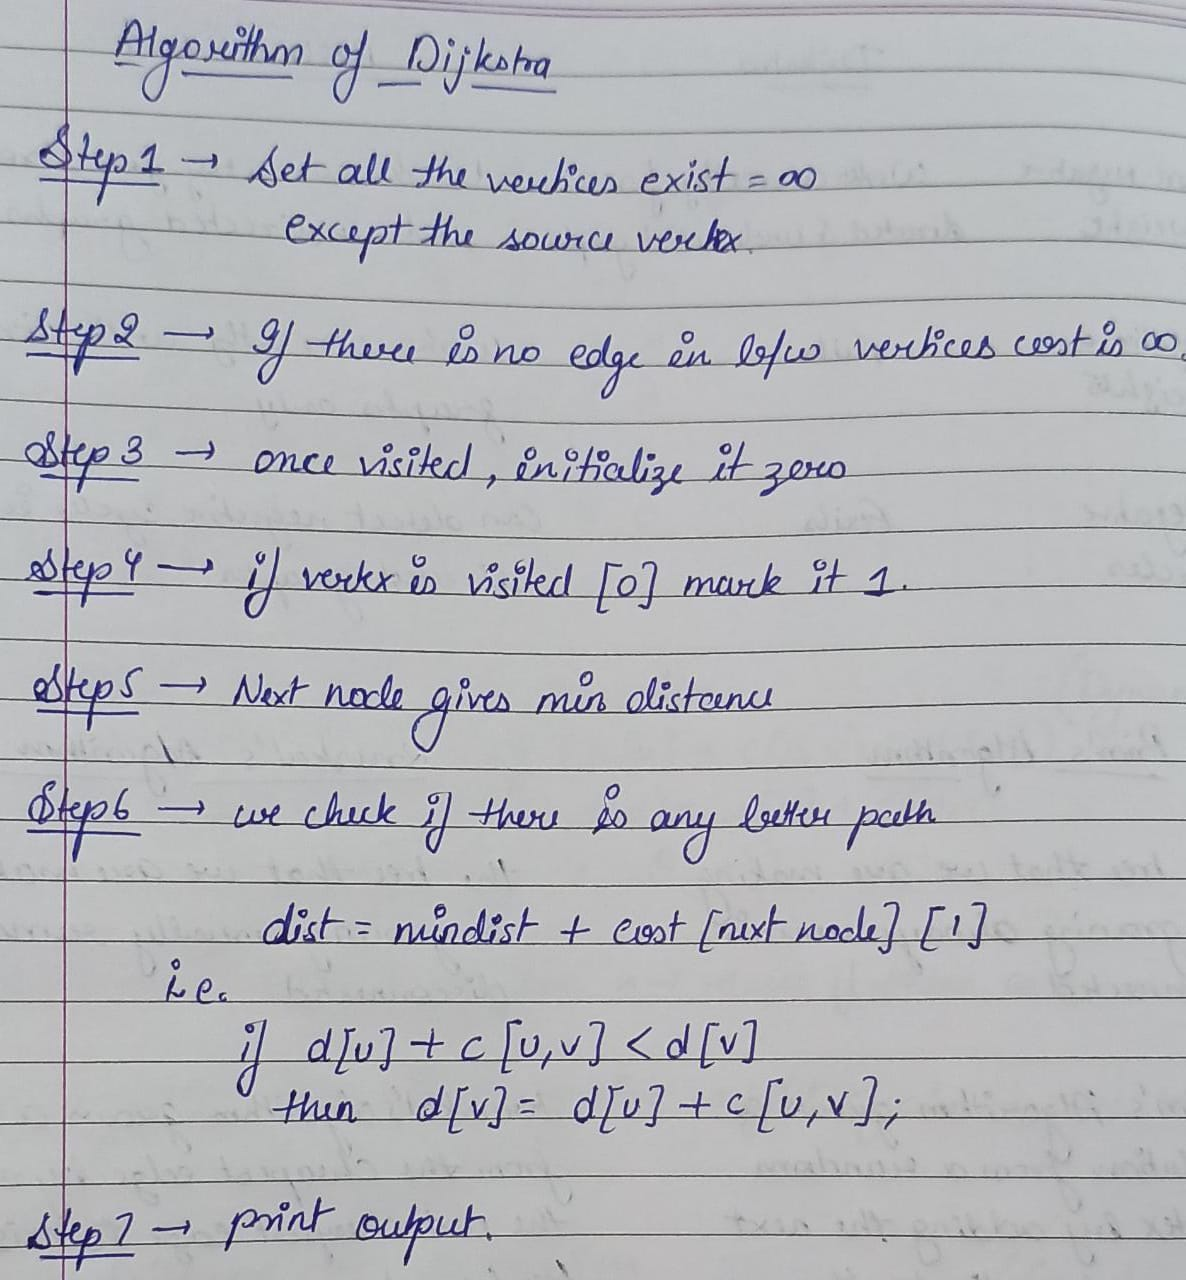 Algorithm of Dijkstra
Step 1 → Set all the vertices exist = ∞
except the source vertex.
Step 2 → If there is no edge in b/w vertices cost is ∞.
Step 3 → once visited, initialize it zero
Step 4 → if vertex is visited [0] mark it 1.
Step 5 → Next node gives min distance
Step 6 → we check if there is any better path
dist = mindist + cost [next node] [1]
i.e.
if d[u] + c [u,v] < d[v]
then d[v] = d[u] + c [u,v];
Step 7 → print output.